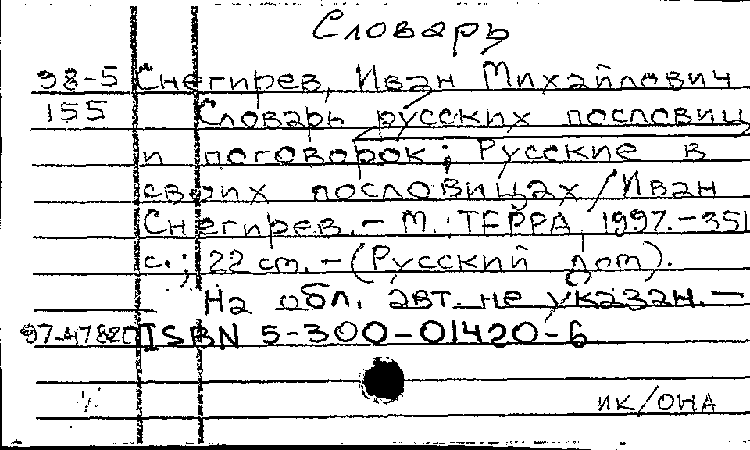 Словарь
98-5 Снегирев, Иван Михайлович
155 Словарь русских пословиц
и поговорок; Русские в
своих пословицах / Иван
Снегирев. – М.: ТЕРРА, 1997. – 351
с.; 22 см. – (Русский дом).
На обл. авт. не указан. –
97-47820 ISBN 5-300-01420-6
ИК/ОНА